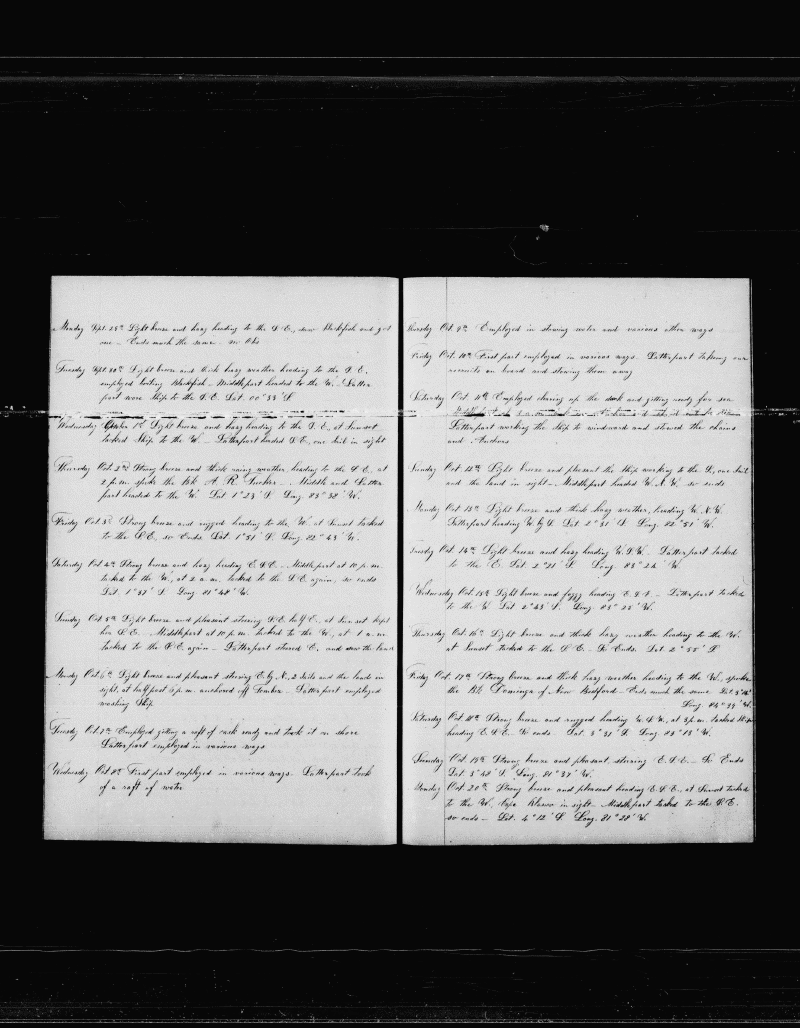 Monday Sept. 29th Light breeze and hazy heading to the S.E., saw blackfish and got
one – Ends much the same – no Obs
Tuesday Sept. 30th Light breeze and thick hazy weather heading to the S.E.
employed boiling blackfish – Middlepart headed to the W. Latter
part wore Ship to the S.E. Lat. 00°33' S
Wednesday October 1st Light breeze and hazy heading to the S.E., at Sunset
tacked Ship to the W. – Latterpart headed S.E., one Sail in sight
Thursday Oct. 2nd Strong breeze and thick rainy weather, heading to the S.E., at
2 p.m. spoke the Bk A. R. Tucker – Middle and Latter
part headed to the W. Lat 1°23' S. Long. 83°32' W.
Friday Oct. 3d Strong breeze and rugged heading to the W. at Sunset tacked
to the S.E., so Ends. Lat. 1°51' S. Long. 82°43' W.
Saturday Oct. 4th Strong breeze and hazy heading E.S.E. – Middlepart at 10 p.m.
tacked to the W., at 2 a.m. tacked to the S.E. again, so ends
Lat. 1°37' S. Long 81°48' W.
Sunday Oct. 5th Light breeze and pleasant steering S.E. by E., at Sunset kept
her S.E. – Middlepart at 10 p.m. tacked to the W., at 1 a.m.
tacked to the S.E. again – Latterpart steered E. and saw the land
Monday Oct. 6th Light breeze and pleasant steering E. by N., 2 Sails and the land in
sight, at half past 5 p.m. anchored off Tombez – Latterpart employed
washing Ship
Tuesday Oct. 7th Employed getting a raft of cask ready and took it on shore
Latterpart employed in various ways
Wednesday Oct. 8th First part employed in various ways – Latterpart took
of a raft of water
Thursday Oct. 9th Employed in stowing water and various other ways
Friday Oct. 10th First part employed in various ways. Latterpart taking our
recruits on board and stowing them away
Saturday Oct. 11th Employed clearing up the deck and getting ready for sea
Latterpart working the ship to windward and stowed the chains
and Anchors
Sunday Oct. 12th Light breeze and pleasant the Ship working to the S., one Sail
and the land in sight – Middlepart headed W.N.W. so ends
Monday Oct. 13th Light breeze and thick hazy weather, heading W.N.W.
Latterpart heading W. by S. Lat. 2°31' S. Long. 82°51' W.
Tuesday Oct. 14th Light breeze and hazy heading W.S.W. – Latterpart tacked
to the E. Lat. 2°21' S. Long. 83°24' W.
Wednesday Oct. 15th Light breeze and foggy heading E.S.E. – Latterpart tacked
to the W. Lat 2°43' S. Long. 83°28' W.
Thursday Oct. 16th Light breeze and thick hazy weather heading to the W.
at Sunset tacked to the S.E., So Ends. Lat. 2°55' S
Friday Oct. 17th Strong breeze and thick hazy weather heading to the W., spoke
the Bk Dominga of New Bedford – Ends much the same Lat 3°16'
Long 84°39' W.
Saturday Oct. 18th Strong breeze and rugged heading W.S.W., at 3 p.m. tacked Ship
heading E.S.E. So ends. Lat. 3°31' S. Long. 83°15' W.
Sunday Oct. 19th Strong breeze and pleasant, steering E.S.E. – So Ends
Lat. 3°48' S. Long. 81°39' W.
Monday Oct. 20th Strong breeze and pleasant heading E.S.E., at Sunset tacked
to the W., Cape Blanco in sight – Middlepart tacked to the S.E.
so ends – Lat. 4°12' S. Long. 81°28' W.